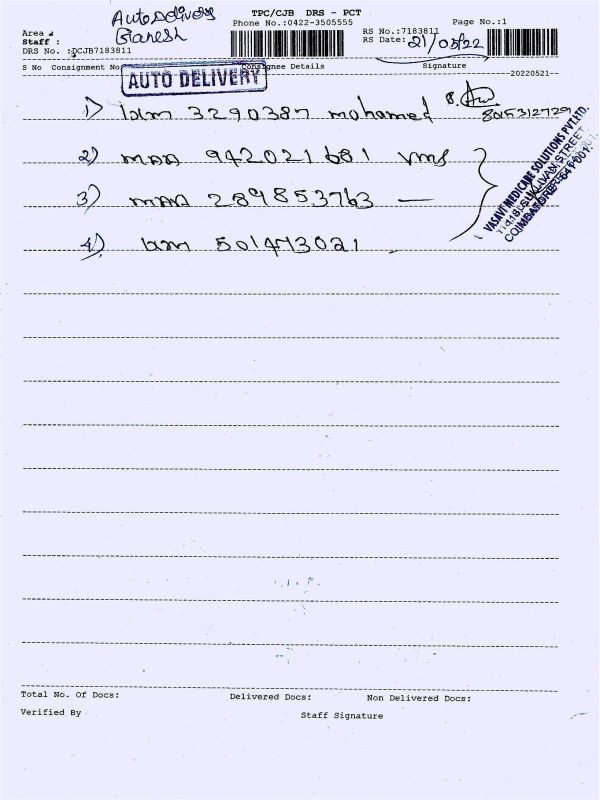 Auto Delivery
Ganesh
TPC/CJB DRS - PCT
Phone No.:0422-3505555
Page No.:1
Area :
Staff :
DRS No. :DCJB7183811
RS No.:7183811
RS Date: 21/05/22
S No Consignment No Consignee Details Signature
AUTO DELIVERY
--20220521--
1) 3290387 mohamed
8015312729
2) maa 942021681 vms
3) maa 289853763 —
4) 501473021
VASAVI MEDICARE SOLUTIONS PVT.LTD.
SULLIVAN STREET
COIMBATORE-641 001.
Total No. Of Docs: Delivered Docs: Non Delivered Docs:
Verified By Staff Signature